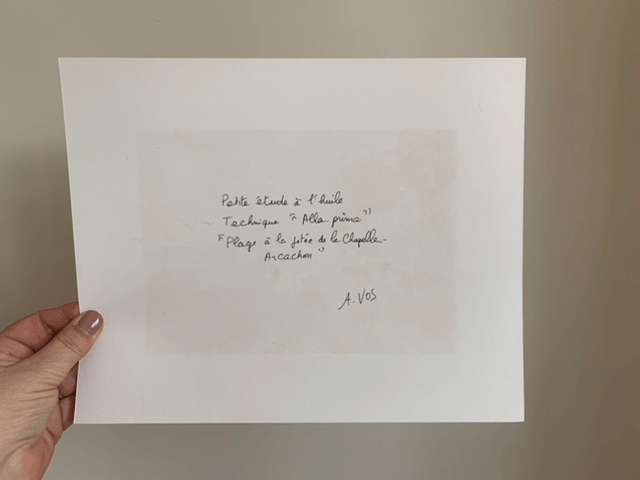 Petite étude à l'huile
Technique "Alla prima"
"Plage à la jetée de la Chapelle-
Arcachon"
A. VOS